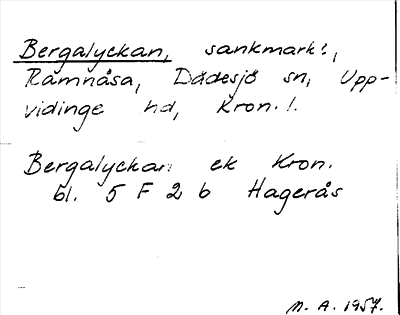 Bergalyckan, sankmark!,
Ramnåsa, Dädesjö sn, Upp-
vidinge hd, Kron. l.
Bergalyckan ek Kron.
bl. 5 F 2 b Hagerås
M. A. 1957.